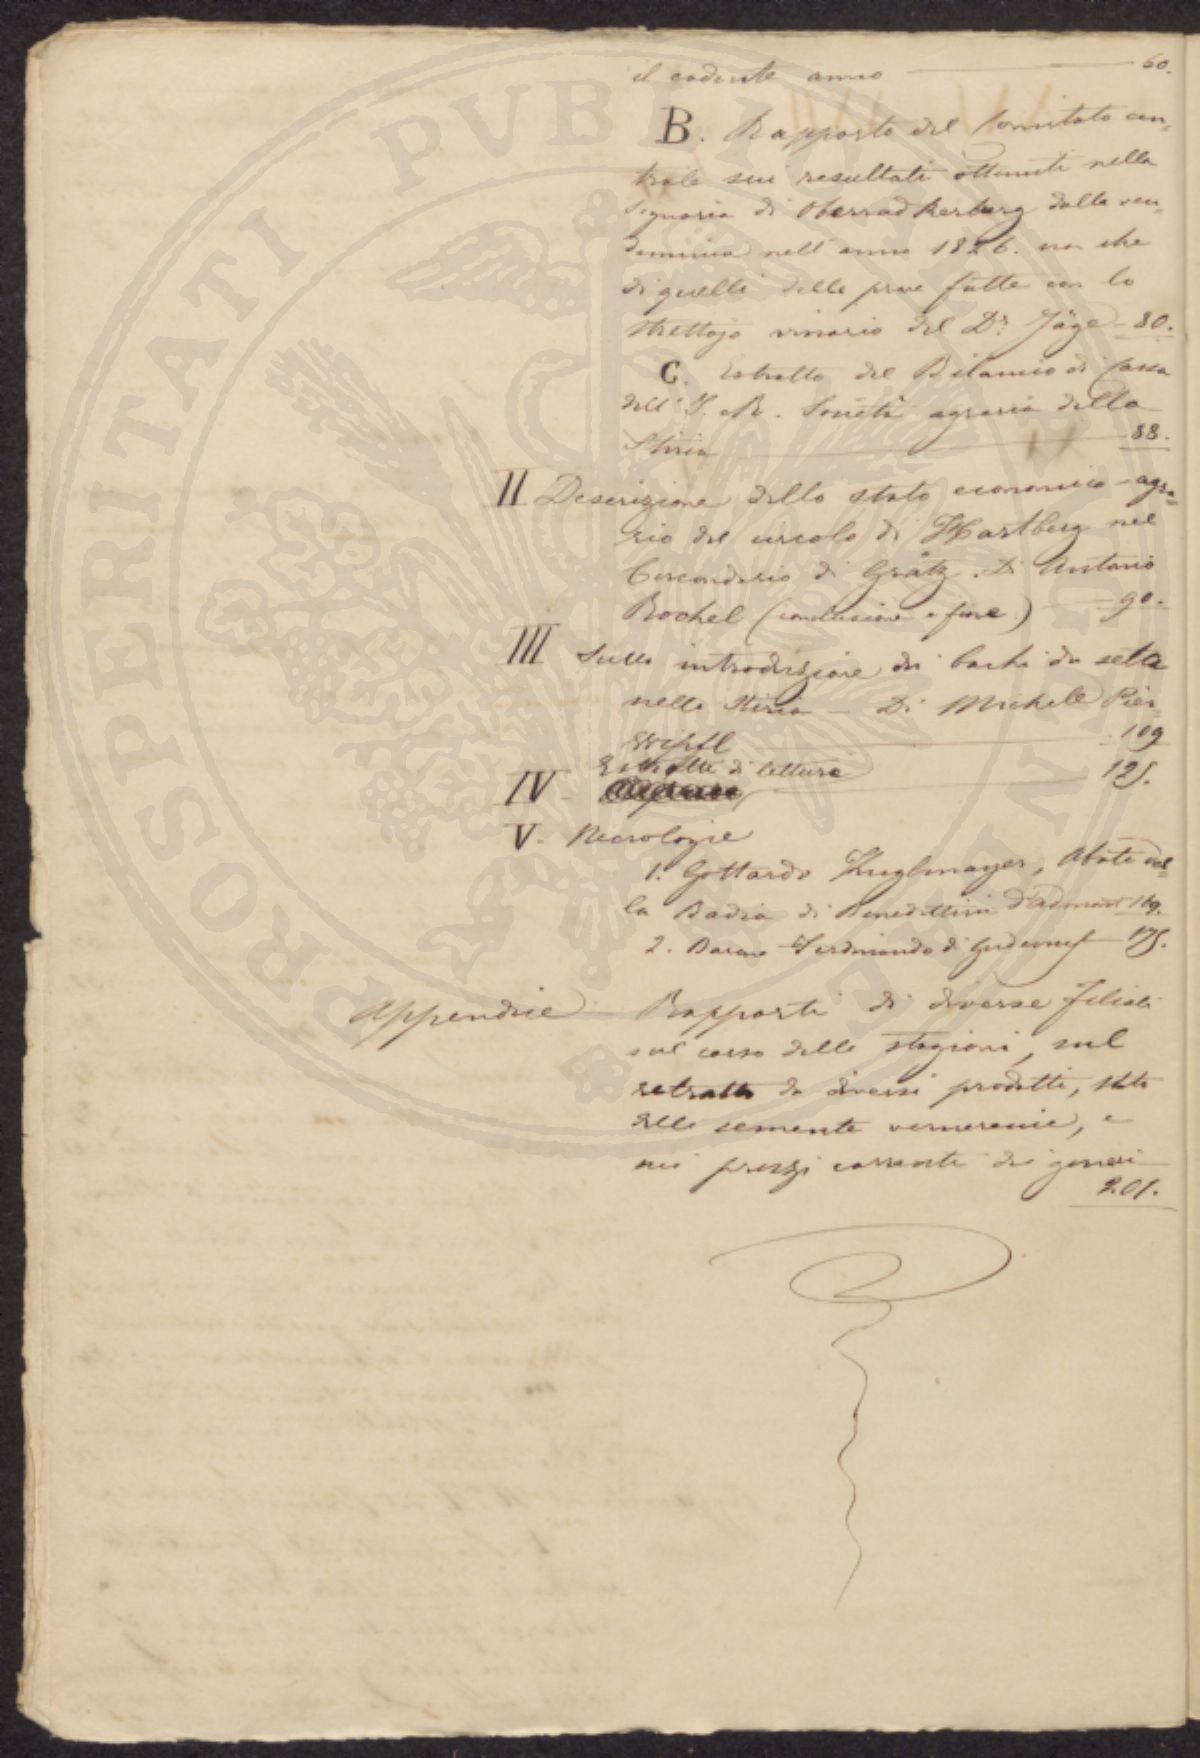 il cadente anno 60.
B. Rapporto del Comitato cen-
trale sui resultati ottenuti nella
Signoria di Oberradkersburg dalla ven-
demmia nell'anno 1826. non che
di quelli delle prove fatte con lo
strettojo vinario del Dr. Jäge 80.
C. Estratto del Bilancio di Cassa
dell'I. R. Società agraria della
Stiria 88.
II Descrizione dello stato economico-agra-
rio del circolo di Hartberg nel
Circondario di Grätz. Di Antonio
Rochel (conclusione e fine) 90.
III Sulla introduzione dei bachi da seta
nella Stiria - Di Michele Pier-
109
Estratti di lettura
IV 125.
V. Necrologie
1. Gottardo Kuglmayer, Abate del-
la Badia di Benedittini d'Admont 169.
2. Barone Ferdinando di 175.
Appendice Rapporti di diverse filiali
sul corso delle stagioni, sul
retratto da diversi prodotti, stato
delle semente vernerecie, e
nei prezzi correnti dei generi
201.
PROSPERITATI PVBLICAE